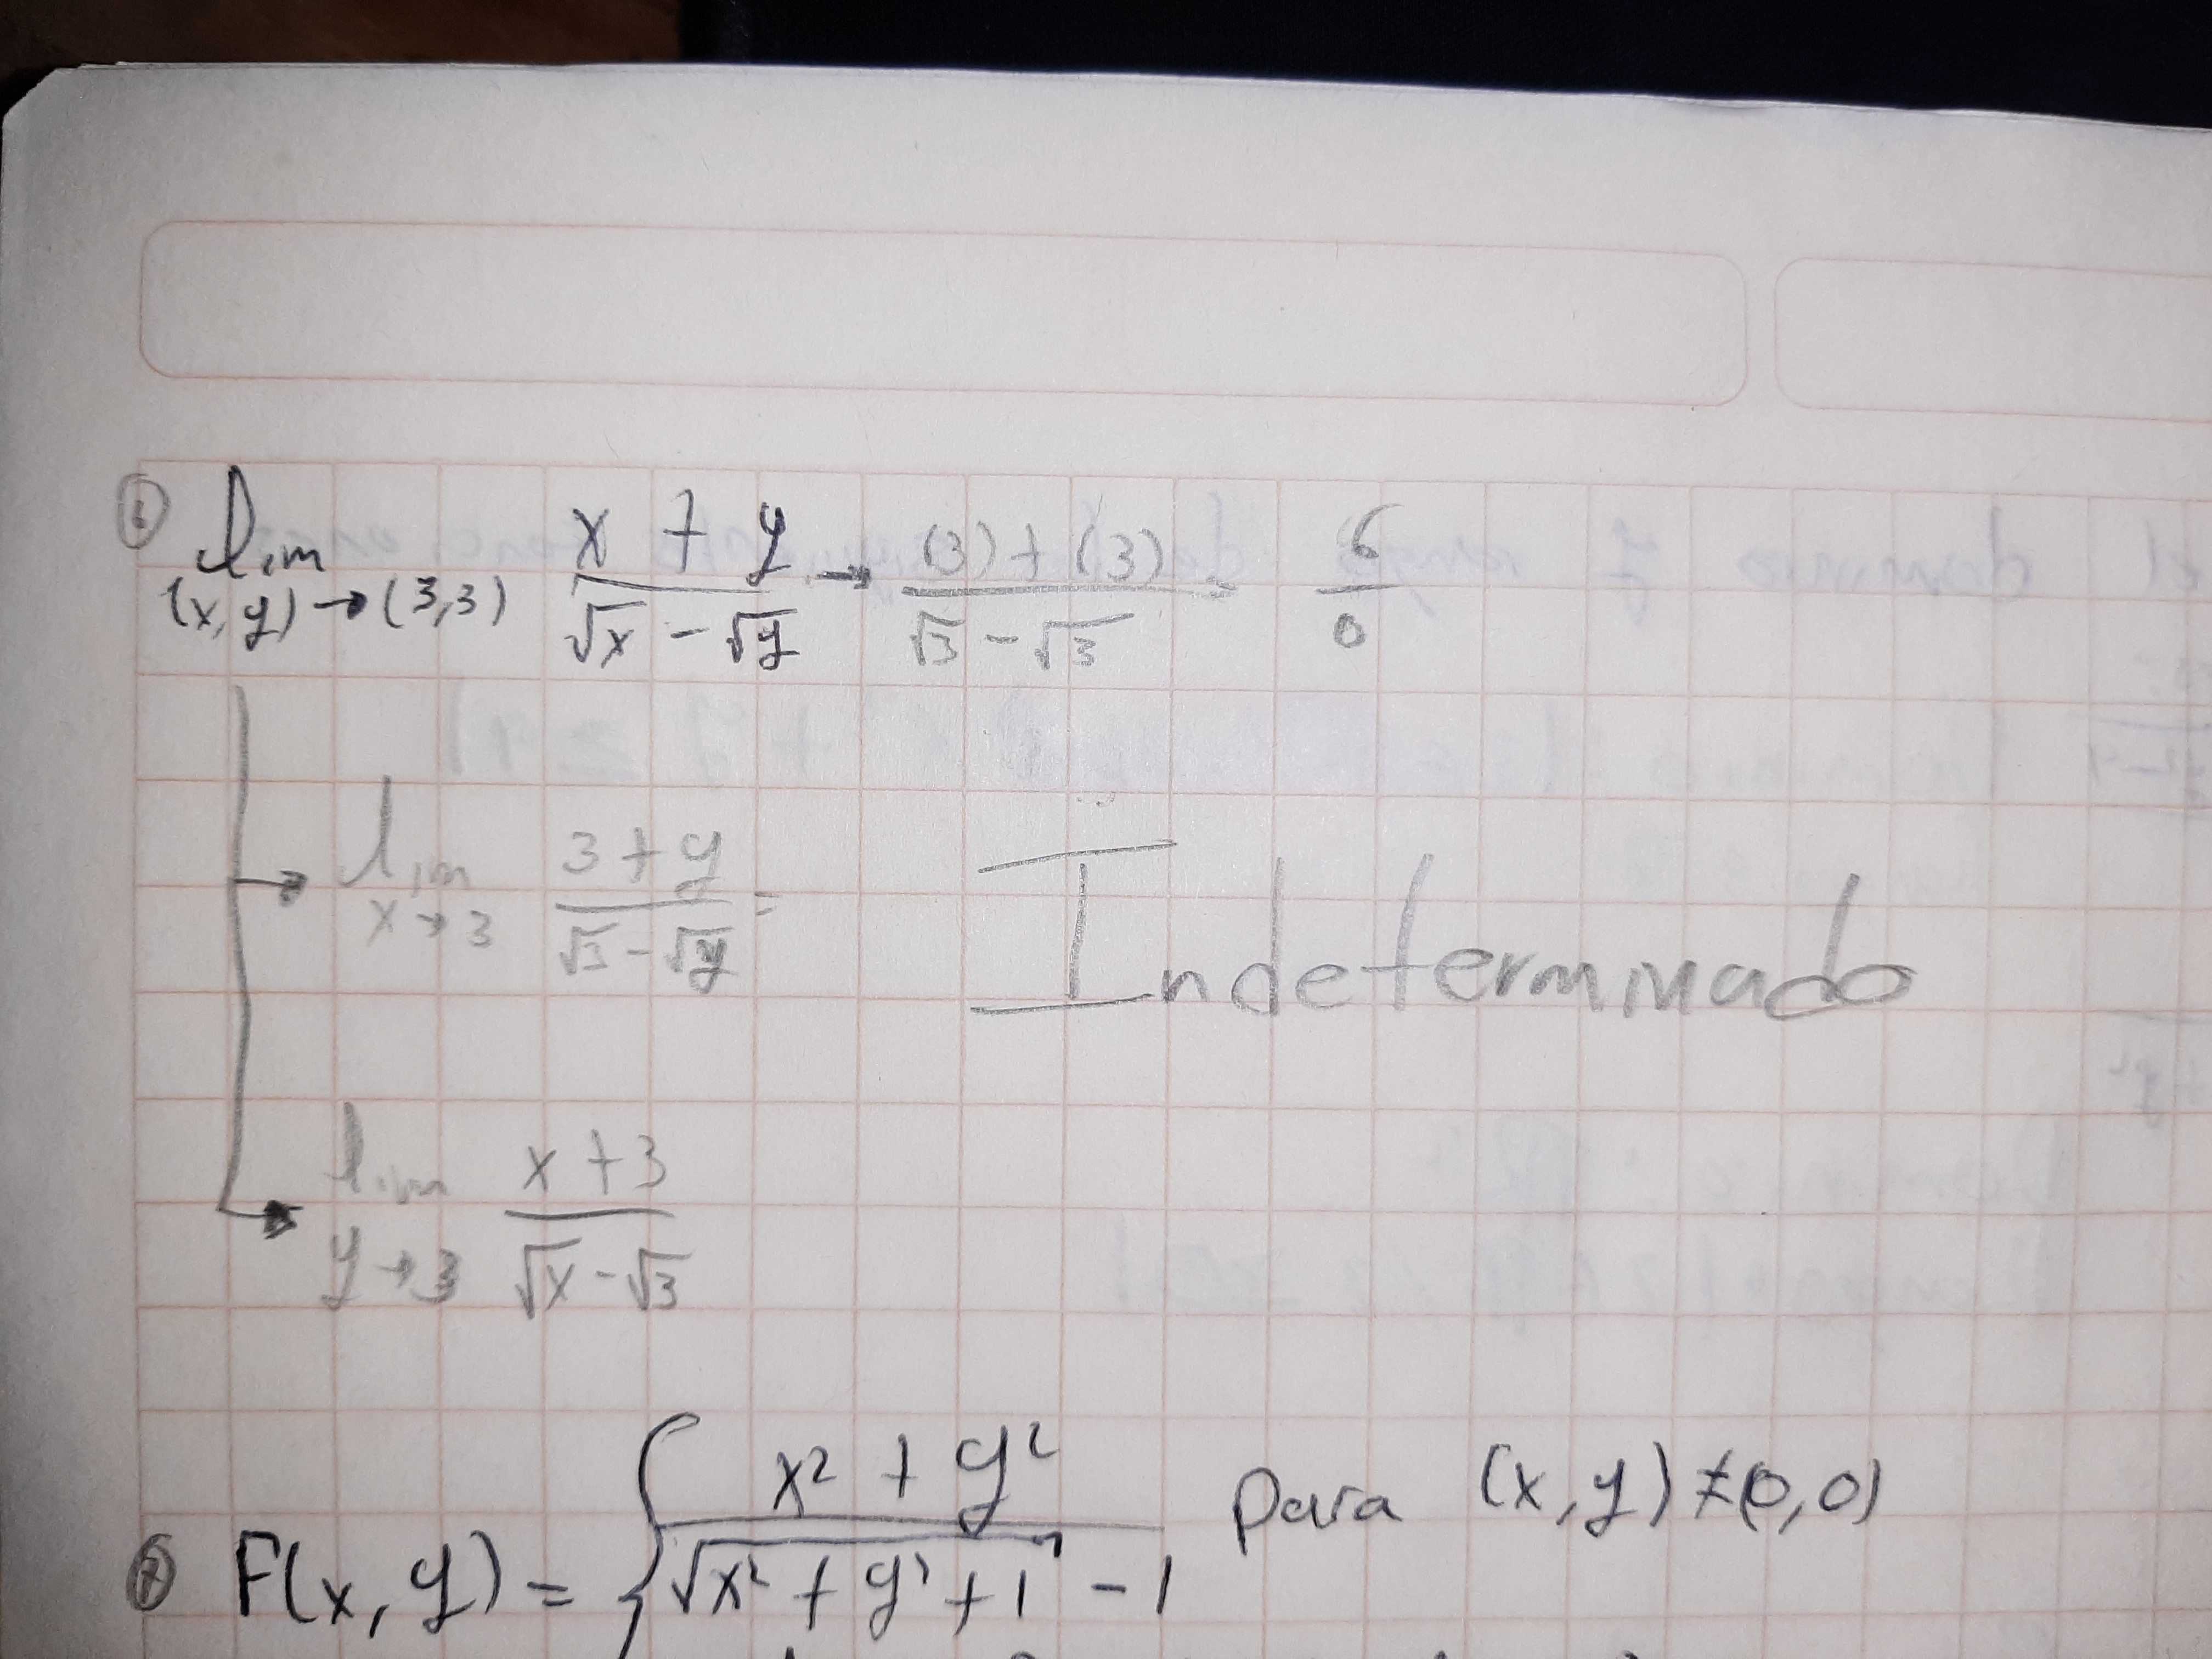 6 lim (x,y)→(3,3) x + y / √x - √y → (3)+(3) / √3 - √3 = 6 / 0
lim x→3 3+y / √3 - √y =
Indeterminado
lim y→3 x+3 / √x - √3
7 F(x,y) = { x² + y² / √x² + y² + 1 - 1 para (x,y) ≠ (0,0)